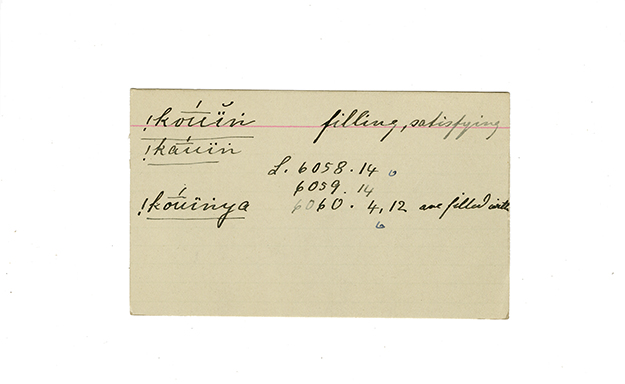 !kóüĭn filling, satisfying
!káüïn
L. 6058.14 b
6059.14
!kóüïnya 6060. 4, 12 are filled with
b